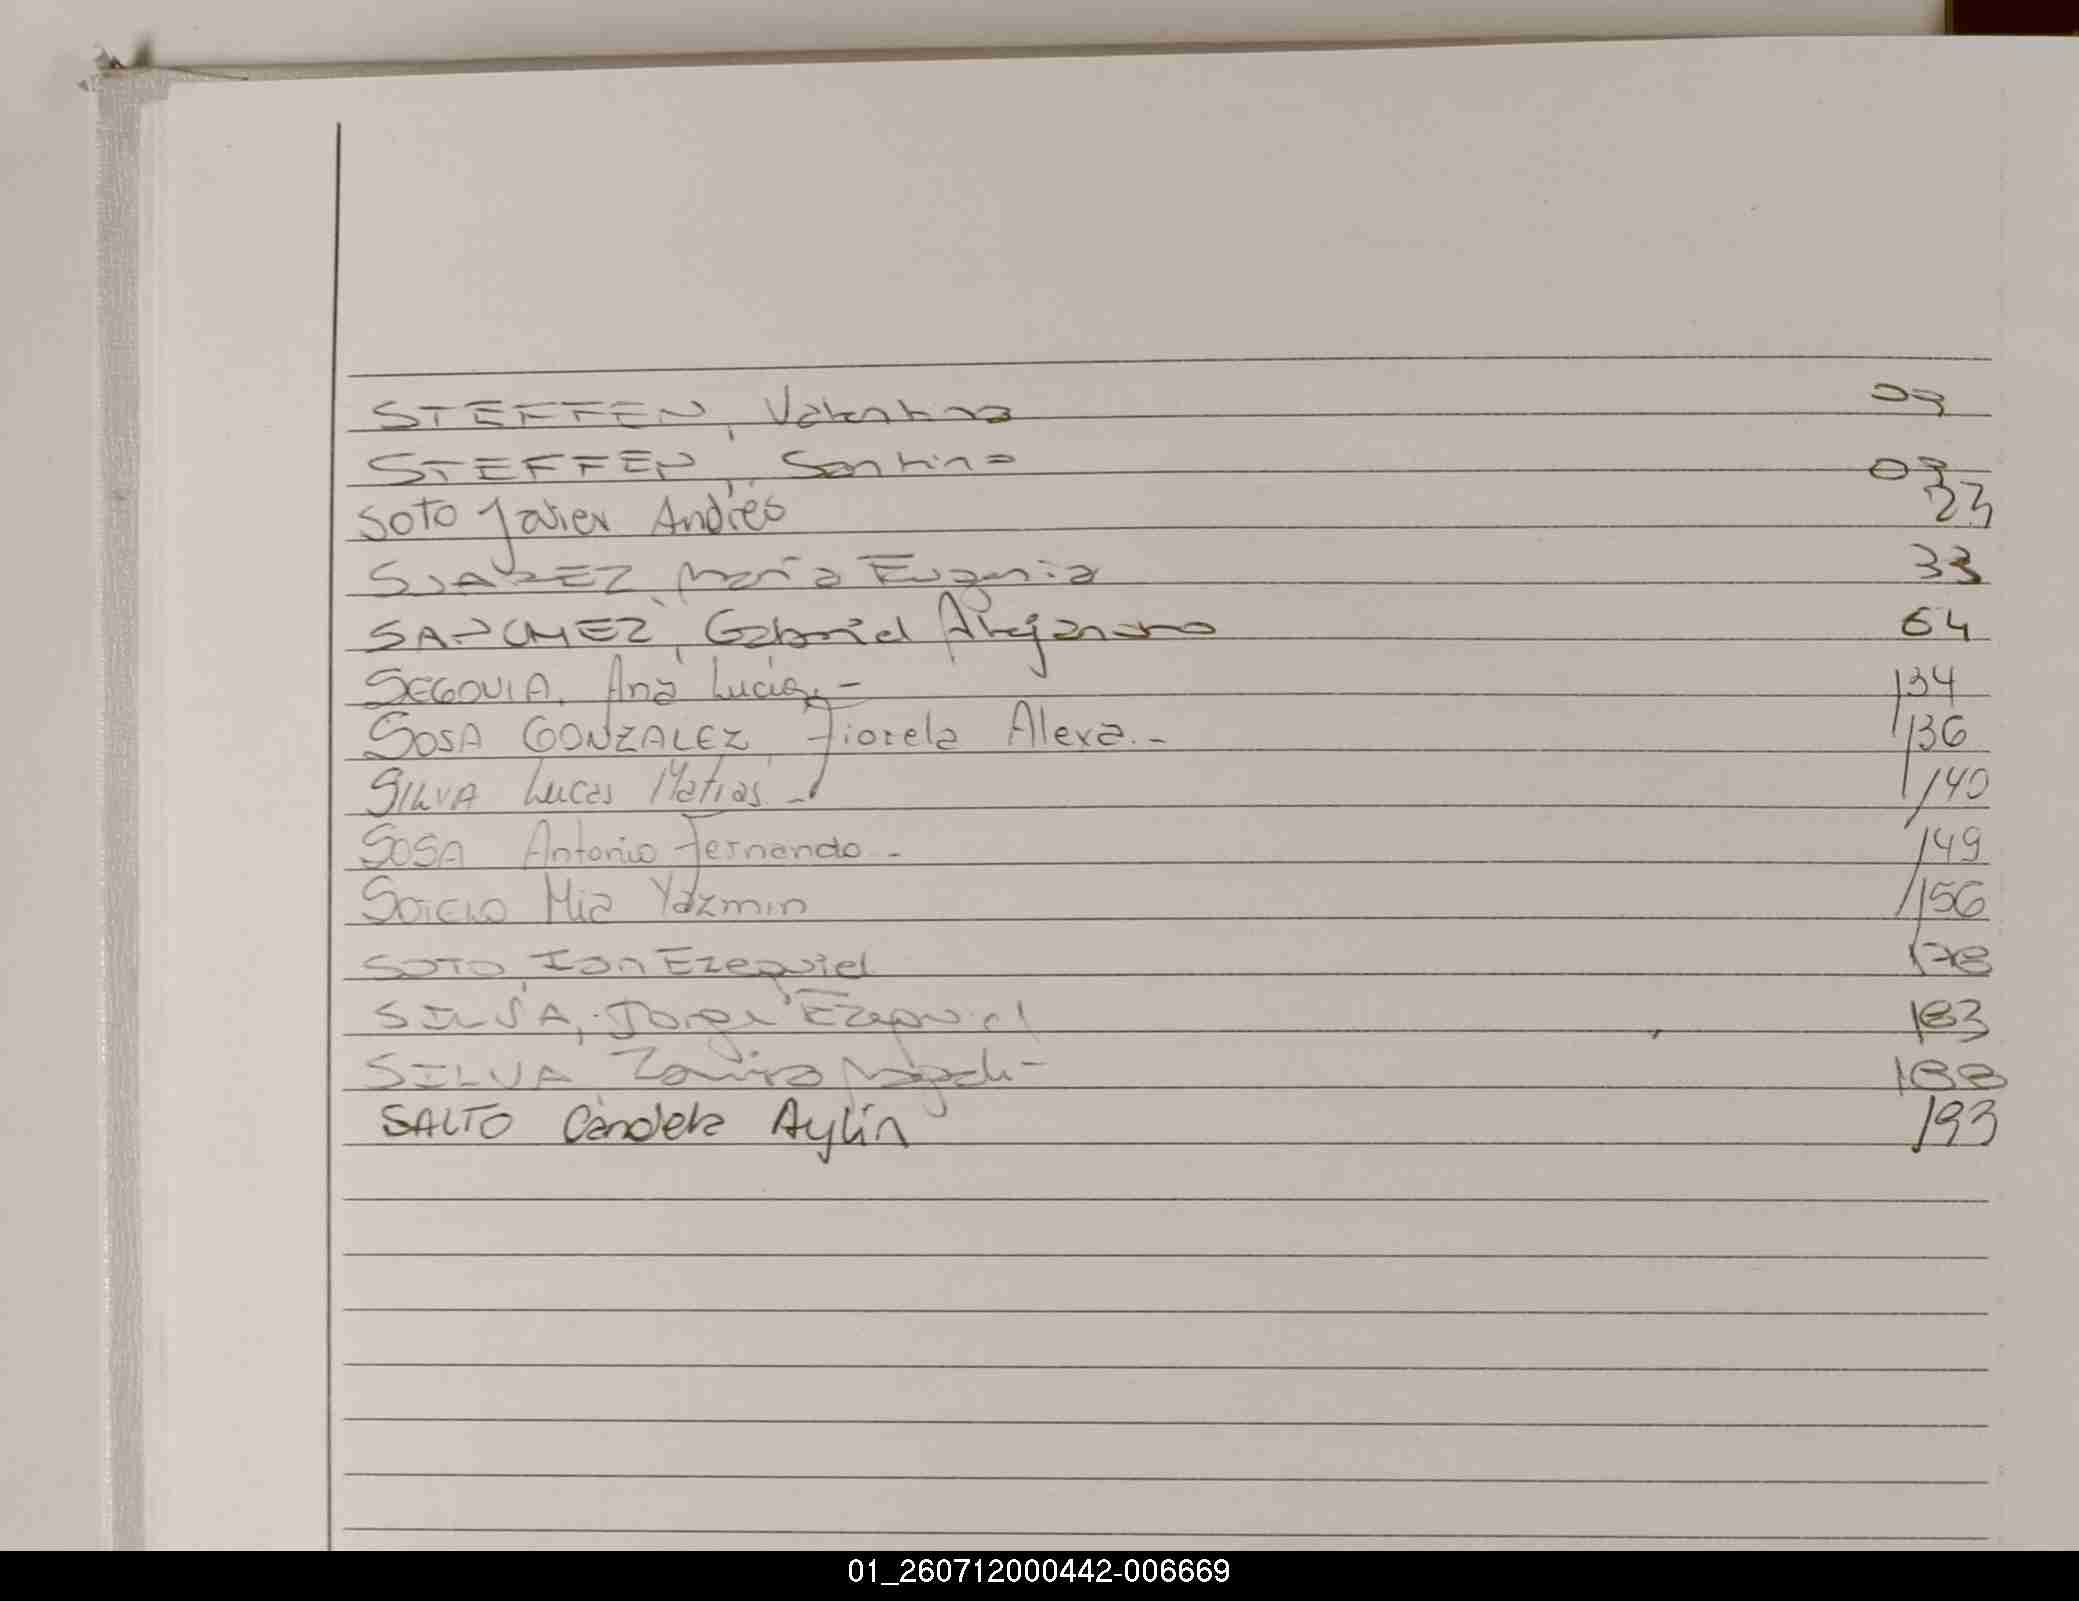 STEFFEN, Valentina 03
STEFFEN, Santino 03
SOTO Javier Andrés 23
SUAREZ, María Eugenia 33
SANCHEZ, Gabriel Alejandro 64
SEGOVIA, Ana Lucia.- 134
SOSA GONZALEZ, Fiorela Alexa.- 136
SILVA Lucas Matias.- 140
SOSA Antonio Fernando - 149
Mia Yazmin 156
SOTO, Ian Ezequiel 178
SILVA, Jorge Ezequiel 183
SILVA Zamira 188
SALTO Candela Aylín 193
01_260712000442-006669